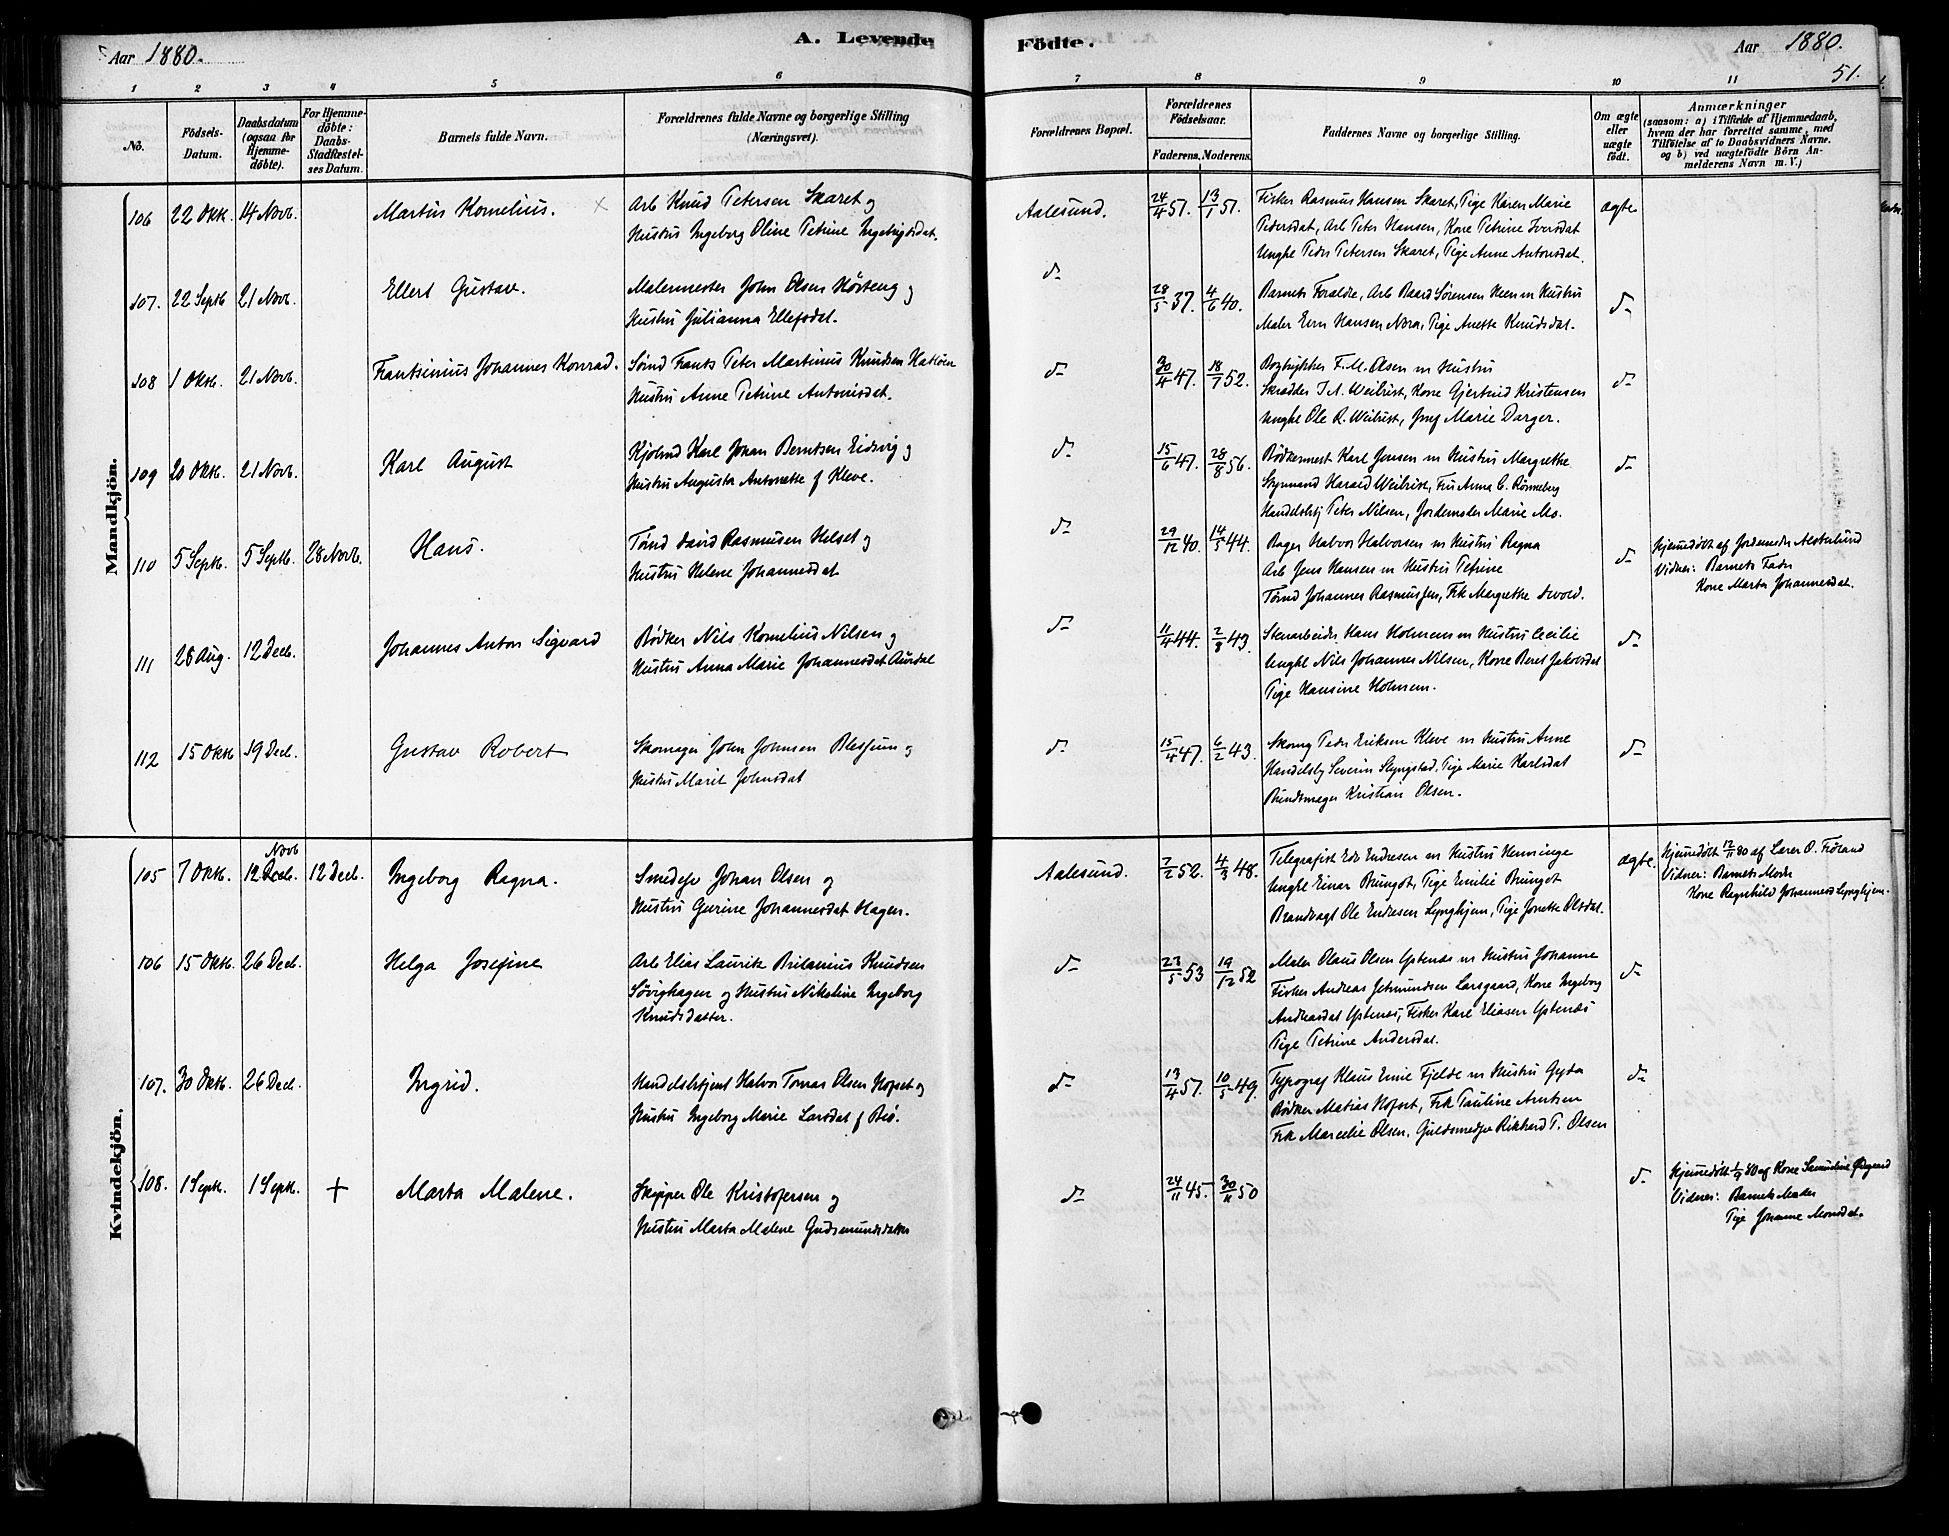 Aar 1880.
A. Levende Födte.
Aar 1880.
51.
1 2 3 4 5 6 7 8 9 10 11
No.
Födsels-Datum.
Daabsdatum (ogsaa for Hjemme-döbte).
For Hjemme-döbte: Daabs-Stadfæstel-ses Datum.
Barnets fulde Navn.
Forældrenes fulde Navne og borgerlige Stilling (Næringsvei).
Forældrenes Bopæl.
Forældrenes Födselsaar.
Faderens. Moderens.
Faddernes Navne og borgerlige Stilling.
Om ægte eller uægte födt.
Anmærkninger (saasom: a) i Tilfælde af Hjemmedaab, hvem der har forrettet samme, med Tilföielse af to Daabsvidners Navne. og b) ved uægtefödte Börn An-melderens Navn m. V.)
Mandkjön.
106 22 Oktb. 14 Novb. Martius Kornelius. × Arb Knud Petersen Skaret og
Hustru Ingeborg Oline Petrine Ingebrigtsdat.
Aalesund. 24/4 51. 13/1 51. Fisker Rasmus Hansen Skaret, Pige Karen Marie
Pedersdat, Arb Peter Hansen, Kone Petrine Iversdat
Ungkl Peder Petersen Skaret, Pige Anne Antonsdat.
ægte
107. 22 Septb 21 Novb. Ellert Gustav. Malermester John Olsen Hörteng og
Hustru Julianna Ellefsdat.
d- 28/5 37. 4/6 40. Barnets Foraldre, Arb Baard Sörensen Heen m Hustru
Maler Even Hansen Nora, Pige Anette Knudsdat.
d-
108 1 Oktb. 21 Novb. Frantsinius Johannes Konrad. Tönd Frants Peter Martinus Knudsen Hatlöen
Hustru Anne Petrine Antonisdat.
d- 30/4 47. 18/7 52. Bogtrykker F. M. Olsen m Hustru
Skrædder I. A. Weibust, Kone Gjertrud Kristensen
Ungkl Ole R. Weibust, Jomf Marie Darger.
d-
109 20 Oktb. 21 Novb. Karl August Kjölmd Karl Johan Berntsen Eidsvig og
Hustru Augusta Antonette f Kleve.
d- 15/6 47. 28/8 56. Bödkermest Karl Jensen m Hustru Margrethe
Styrmand Harald Weibust, Fru Anna C. Rönneberg
Handelsbtj Peter Nilsen, Jordemoder Marie Mo.
d-
110 5 Septb. 5 Septb. 28 Novb. Hans. Tönd David Rasmusen Helset og
Hustru Helene Johannesdat
d- 29/12 40. 14/5 44. Bager Halvor Halvorsen m Hustru Ragna
Arb Jens Hansen m Hustru Petrine
Tönd Johannes Rasmussen, Frk Margrethe Devold.
d- Hjemmedöbt af Jordemoder Akslelund
Vidner: Barnets Fader
Kone Martha Johannesdat.
111 28 Aug. 12 Decb. Johannes Anton Sigvard Bödker Nils Kornelius Nilsen og
Hustru Anna Marie Johannesdat Aursdal
d- 11/4 44. 2/8 43. Stenarbeider Hans Holmem m Hustru Cecilie
Ungkl Nils Johannes Nilsen, Kone Beret Jakobsdat
Pige Hansine Holmem.
d-
112 15 Oktb 19 Decb. Gustav Robert Skomager John Johnsen Blessum og
Hustru Marit Johnsdat
d- 15/4 47. 6/2 43. Skomg Peder Eriksen Kleve m Hustru Anne
Handelsbj Severin Slyngstad, Pige Marie Karlsdat
Bundtmager Kristian Olsen.
d-
Kvindekjön.
105 7 Oktb. 12 Decb. Novb 12 Decb. Ingeborg Ragna. Smedesv Johan Olsen og
Hustru Gurine Johannesdat Hagen.
Aalesund. 7/2 52. 4/3 48. Telegrafist Edv Endresen m Hustru Henninge
Ungkl Einar Brungot, Pige Emilie Brungot
Brandvagt Ole Endresen Lynghjem, Pige Jonette Olsdat.
ægte. Hjemmedöbt 12/11 80 af Lærer O. Fröland
Vidner: Barnets Moder
Kone Ragnhild Johannesd Lynghjem.
106 15 Oktb. 26 Decb. Helga Josefine Arb Elias Lauritz Britanius Knudsen
Sövighagen og Hustru Nikoline Ingeborg
Knudsdatter.
d- 23/5 53 19/12 52 Maler Olaus Olsen Ystenæs m Hustru Johanne
Fisker Andreas Jetmundsen Larsgaard, Kone Ingeborg
Andreasdat Ystenæs, Fisker Karl Eliasen Ystenæs
Pige Petrine Andersdat.
d-
107. 30 Oktb. 26 Decb. Ingrid. Handelsbtjent Halvor Tomas Olsen Hofset og
Hustru Ingeborg Marie Larsdat f Beö.
d- 13/4 57. 10/5 49. Typograf Klaus Emil Fjelde m Hustru Gyda
Bödker Matias Hofset, Frk Pauline Arntsen
Frk Marcelie Olsen, Guldsmedsv Rikhard T. Olsen
d-
108. 1 Septb. 1 Septb. + Marta Malene. Skipper Ole Kristofersen og
Hustru Marta Malene Gudmundsdatter
d- 24/11 45. 30/11 50
d- Hjemmedöbt 1/9 80 af Kone Samueline Ödegaard
Vidner: Barnets Moder
Pige Johanne Monsdat.